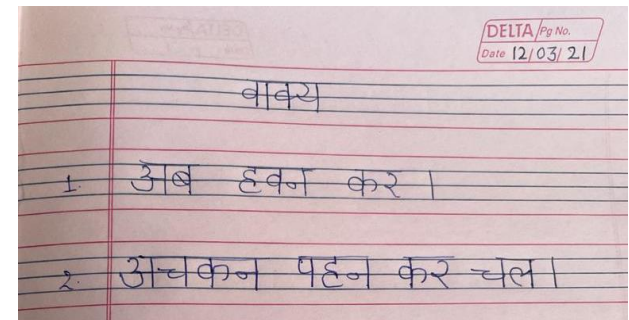 DELTA Pg No.
Date 12/03/21
वाक्य
1. अब हवन कर।
2. अचकन पहन कर चल।